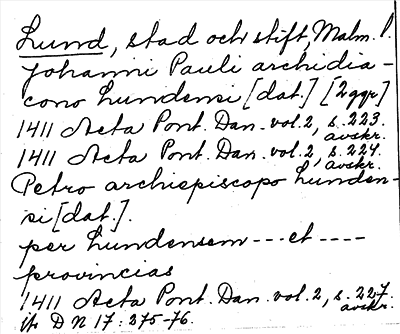 Lund, stad och stift, Malm. l.
Johanni Pauli archidia-
cono Lundensi [dat.] [2ggr]
1411 Acta Pont. Dan. vol. 2, s. 223.
avskr.
1411 Acta Pont. Dan. vol. 2, s. 224.
avskr.
Petro archiepiscopo Lunden-
si [dat.].
per Lundensem --- et ----
provincias
1411 Acta Pont. Dan. vol. 2, s. 227
avskr.
jfr D N 17: 275-76.